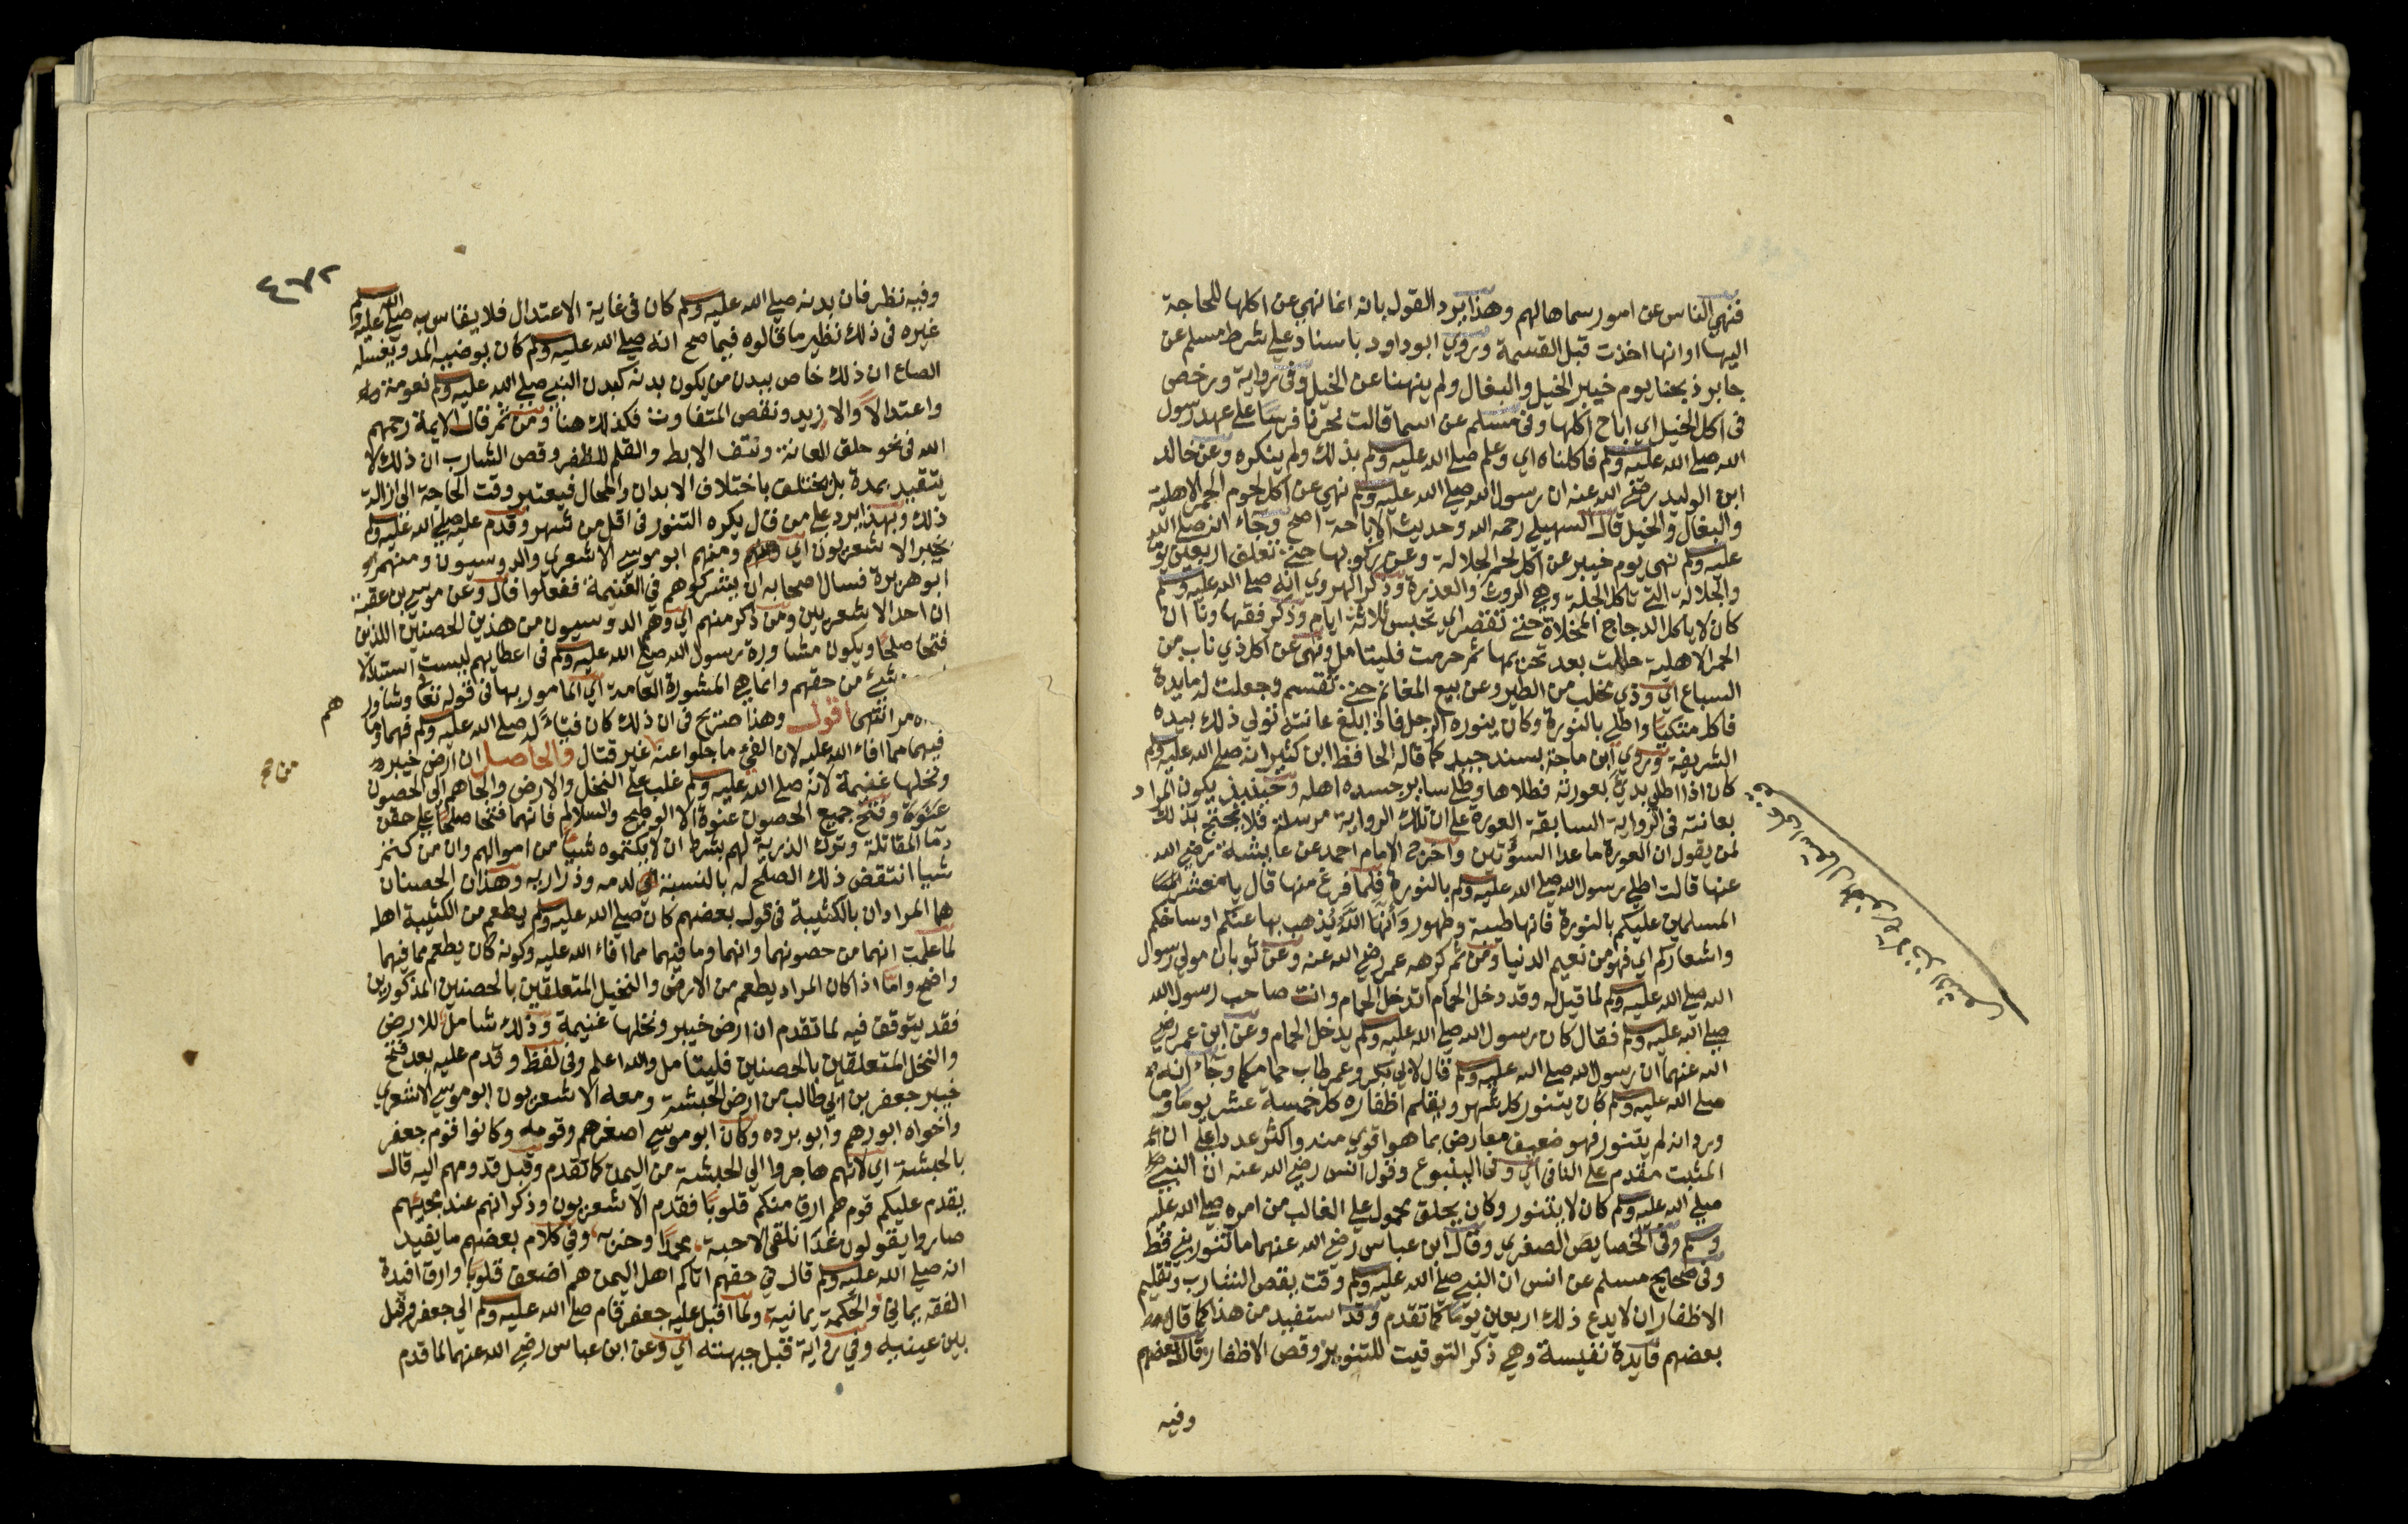 فنهي الناس عن امور سماها لهم وهذا يرد القول بانه انما نهي عن اكلها للحاجة
اليها او انها اخذت قبل القسمة وروي ابو داود باسناد علي شرط مسلم عن
جابر ذبحنا يوم خيبر الخيل والبغال ولم ينهنا عن الخيل وفي رواية ورخص
في اكل الخيل اي اباح اكلها وفي مسلم عن اسما قالت نحرنا فرسا علي عهد رسول
الله صلي الله عليه وسلم فاكلناه اي وعلم صلي الله عليه وسلم بذلك ولم ينكره وعن خالد
ابن الوليد رضي الله عنه ان رسول الله صلي الله عليه وسلم نهي عن اكل لحوم الحمر الاهلية
والبغال والخيل قال السهيلي رحمه الله وحديث الاباحة اصح وجاء انه صلي الله
عليه وسلم نهى يوم خيبر عن اكل لحم الجلالة وعن ركوبها حتي تعلف اربعين يوما
والجلالة التي تاكل الجلة وهي الروث والعذرة وذكر الهروي انه صلي الله عليه وسلم
كان لا ياكل الدجاج المخلاة حتي تقتصر اي تحبس ثلاثة ايام وذكر فقهاونا ان
الحمر الاهلية حللت بعد تحريمها ثم حرمت فليتامل ونهى عن اكل ذي ناب من
السباع اي وذي مخلب من الطير وعن بيع المغانم حتي تقسم وجعلت له مايدة
فاكل متكيا واطلي بالنورة وكان ينوره الرجل فاذا بلغ عانته تولي ذلك بيده
الشريفة وروي ابن ماجة بسند جيد كما قاله الحافظ ابن كثير انه صلي الله عليه وسلم
كان اذا اطلي بدئ بعورته فطلاها وطلي ساير جسده اهله وحينيذ يكون المراد
بعانته في الرواية السابقة العورة علي ان تلك الرواية مرسلة فلا يحتج بذلك
لمن يقول ان العورة ما عدا السوءتين واخرج الامام احمد عن عايشة رضي الله
عنها قالت اطلي رسول الله صلي الله عليه وسلم بالنورة فلما فرغ منها قال يا معشر
المسلمين عليكم بالنورة فانها طيبة وطهور وانها الله يذهب بها عنكم اوساخكم
واشعاركم اي فهو من نعيم الدنيا ومن ثم كرهه عمر رضي الله عنه وعن ثوبان مولي رسول
الله صلي الله عليه وسلم لما قيل له وقد دخل الحمام اتدخل الحمام وانت صاحب رسول الله
صلي الله عليه وسلم فقال كان رسول الله صلي الله عليه وسلم يدخل الحمام وعن ابن عمر رضي
الله عنهما ان رسول الله صلي الله عليه وسلم قال لابي بكر وعمر طاب حمامكما وجاء انه
صلي الله عليه وسلم كان يتنور كل شهر ويقلم اظفاره كل خمسة عشر يوما وما
ورد انه لم يتنور فهو ضعيف معارض بما هو اقوي منه واكثر عددا علي ان
المثبت مقدم علي النافي اي وفي الينبوع وقول انس رضي الله عنه ان النبي
صلي الله عليه وسلم كان لا يتنور وكان يحلق محمول علي الغالب من امره صلي الله عليه
وسلم وفي الخصايص الصغري وقال ابن عباس رضي الله عنهما ما تنور نبي قط
وفي صحيح مسلم عن انس ان النبي صلي الله عليه وسلم وقت بقص الشارب وتقليم
الاظفار ان لا يدع ذلك اربعين يوما كما تقدم وقد استفيد من هذا كما قال
بعضهم فايدة نفيسة وهي ذكر التوقيت للتنوير وقص الاظفار قال بعضهم
وفيه
٤٧٢
وفيه نظر فان بدنه صلي الله عليه وسلم كان في غاية الاعتدال فلا يقاس به صلي الله عليه وسلم
غيره في ذلك نظير ما قالوه فيما صح انه صلي الله عليه وسلم كان يوضيه المد ويغسله
الصاع ان ذلك خاص ببدن من يكون بدنه كبدن النبي صلي الله عليه وسلم نعومة
واعتدالا والا زيد ونقص المتفاوت فكذلك هنا ومن ثم قال الايمة رحمهم
الله في نحو حلق العانة ونتف الابط والقلم للظفر وقص الشارب ان ذلك لا
يتقيد بمدة بل يختلف باختلاف الابدان والمحال فيعتبر وقت الحاجة الى ازالة
ذلك وبهذا يرد علي من قال يكره التنور في اقل من شهر وقدم عليه صلي الله عليه وسلم
بخيبر الاشعريون اي ومنهم ابو موسي الاشعري والدوسيون ومنهم
ابو هريرة فسال اصحابه ان يشركوهم في الغنيمة ففعلوا قال وعن موسي بن عقبة
ان احد الاشعريين ومن ذكر منهم اي وهم الدوسيون من هذين الحصنين اللذين
فتحا صلحا ويكون مشاورة رسول الله صلي الله عليه وسلم في اعطايهم ليست استنزالا
شئ من حقهم وانما هي المشورة العامة اي المامور بها في قوله تعا وشاور
هم
مر انتهى اقول وهذا صريح في ان ذلك كان فيئا له صلي الله عليه وسلم فهما وما
فيهما مما افاء الله عليه لان الفئ ما جلوا عنه غير قتال والحاصل ان ارض خيبر
ونخلها غنيمة لانه صلي الله عليه وسلم غلب علي النخل والارض والجاهم الى الحصون
عنوة وفتح جميع الحصون عنوة الا الوطيح والسلالم فانهما فتحا صلحا علي حقن
دما المقاتلة وترك الذرية لهم بشرط ان لا يكتموه شيا من اموالهم وان من كتم
شيا انتقض ذلك الصلح له بالنسبة لدمه وذراريه وهذان الحصنان
هما المرادان بالكتيبة في قول بعضهم كان صلي الله عليه وسلم يطعم من الكتيبة اهله
لما علمت انهما من حصونهما وانهما وما فيهما مما افاء الله عليه وكونه كان يطعم مما فيهما
واضح واما اذا كان المراد يطعم من الارض والنخيل المتعلقين بالحصنين المذكورين
فقد يتوقف فيه لما تقدم ان ارض خيبر ونخلها غنيمة وذلك شامل للارض
والنخل المتعلقين بالحصنين فليتامل والله اعلم وفي لفظ وقدم عليه بعد فتح
خيبر جعفر بن ابي طالب من ارض الحبشة ومعه الاشعريون ابو موسي الاشعري
واخواه ابو رهم وابو برده وكان ابو موسي اصغرهم وقومه وكانوا قوم جعفر
بالحبشة اي لانهم هاجروا الي الحبشة من اليمن كما تقدم وقبل قدومهم اليه قال
يقدم عليكم قوم هم ارق منكم قلوبا فقدم الاشعريون وذكر انهم عند مجيئهم
صاروا يقولون غدا نلقي الاحبة محمدا وحزبه وفي كلام بعضهم ما يفيد
انه صلي الله عليه وسلم قال في حقهم اتاكم اهل اليمن هم اضعف قلوبا وارق افيدة
الفقه يماني والحكمة يمانية ولما اقبل عليه جعفر قام صلي الله عليه وسلم الي جعفر وقبل
بين عينيه وفي رواية قبل جبهته اي وعن ابن عباس رضي الله عنهما لما قدم